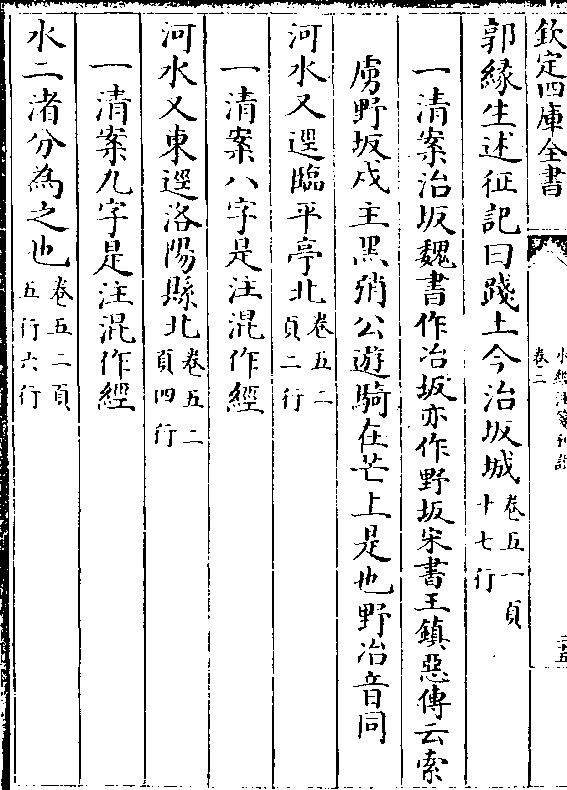 欽定四庫全書
水經注箋刊誤
卷二
郭縁生述征記曰踐土今治坂城卷五一頁十七行
一清案治坂魏書作冶坂亦作野坂宋書王鎮惡傳云索
虜野坂戍主黑矟公遊騎在芒上是也野冶音同
河水又逕臨平亭北卷五二頁二行
一清案八字是注混作經
河水又東逕洛陽縣北卷五二頁四行
一清案九字是注混作經
水二渚分為之也卷五二頁五行六行